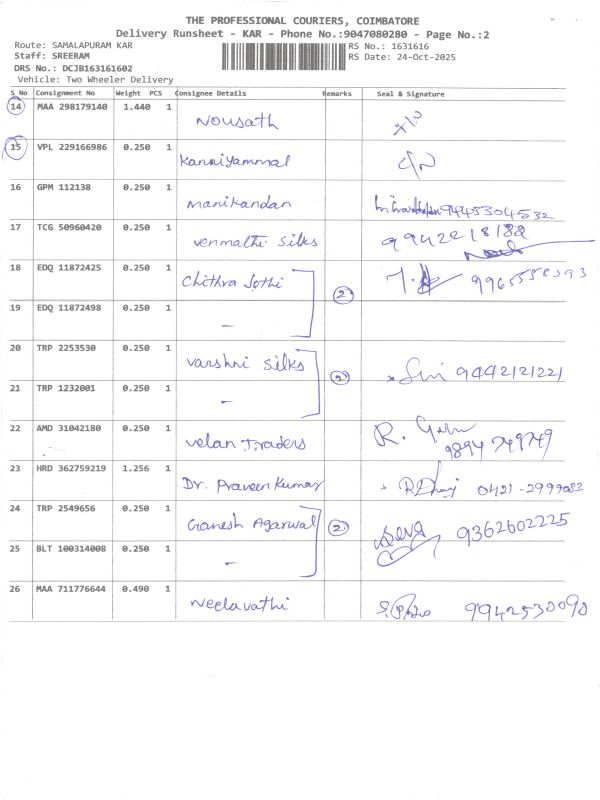 THE PROFESSIONAL COURIERS, COIMBATORE
Delivery Runsheet - KAR - Phone No.:9047080280 - Page No.:2
Route: SAMALAPURAM KAR RS No.: 1631616
Staff: SREERAM RS Date: 24-Oct-2025
DRS No.: DCJB163161602
Vehicle: Two Wheeler Delivery
S No Consignment No Weight PCS Consignee Details Remarks Seal & Signature
14 MAA 298179140 1.440 1 Nousath
15 VPL 229166986 0.250 1 Kanniyammal
16 GPM 112138 0.250 1 Manikandan 9445304532
17 TCG 50960420 0.250 1 Venmathi Silks 9942218182
18 EDQ 11872425 0.250 1 Chithra Jothi 2
19 EDQ 11872498 0.250 1 -
20 TRP 2253530 0.250 1 Varshni Silks 2 9442121221
21 TRP 1232001 0.250 1 -
22 AMD 31042180 0.250 1 Velan Traders R. 9894749749
23 HRD 362759219 1.256 1 Dr. Praveen Kumar 0421-2999083
24 TRP 2549656 0.250 1 Ganesh Agarwal 2 9362602225
25 BLT 100314008 0.250 1 -
26 MAA 711776644 0.490 1 Neelavathi 9942530090